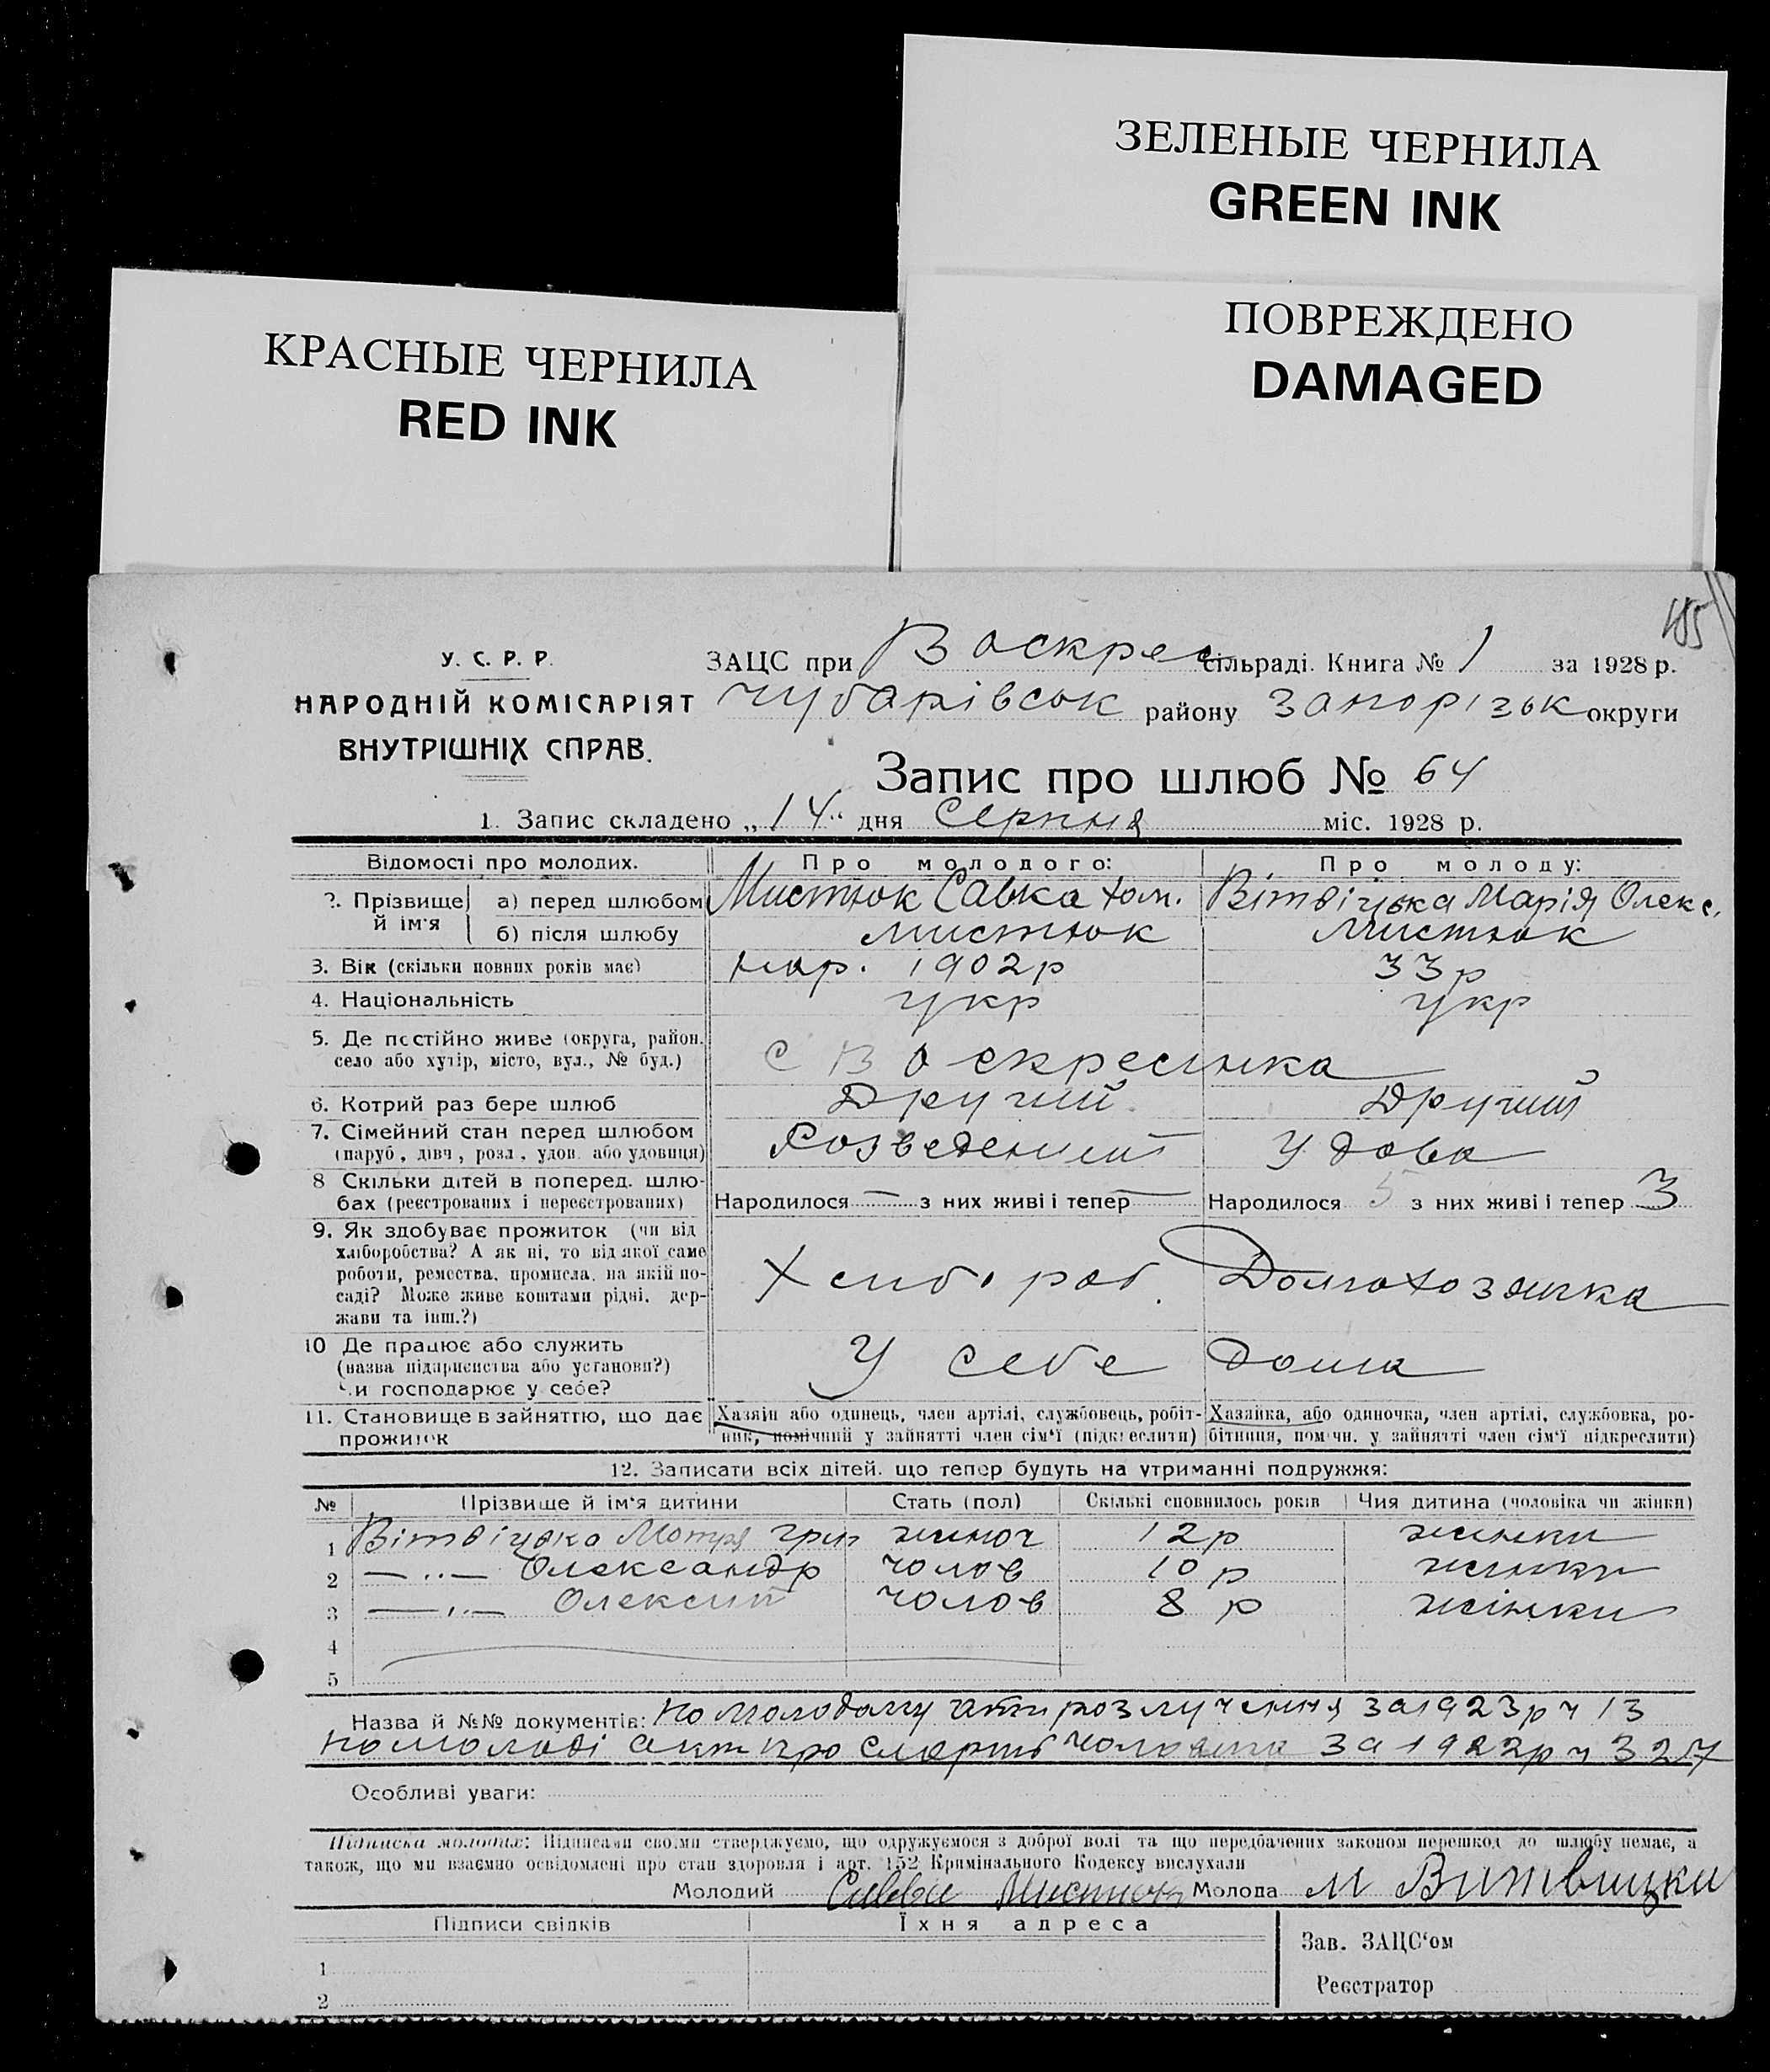 ЗЕЛЕНЫЕ ЧЕРНИЛА
GREEN INK
ПОВРЕЖДЕНО
DAMAGED
КРАСНЫЕ ЧЕРНИЛА
RED INK
У. С. Р. Р.
НАРОДНІЙ КОМІСАРІЯТ
ВНУТРІШНІХ СПРАВ.
ЗАЦС при Воскрес сільраді. Книга № 1 за 1928 р.
Чубарівськ району Запорізьк округи
Запис про шлюб № 64
1. Запис складено „14“ дня Серпня міс. 1928 р.
Відомості про молодих. Про молодого: Про молоду:
2. Прізвище й ім'я а) перед шлюбом Мистюк Савка Хом. Вітвіцька Марія Олекс.
б) після шлюбу Мистюк Мистюк
3. Вік (скільки повних років має) нар. 1902р 33р
4. Національність укр укр
5. Де постійно живе (округа, район, село або хутір, місто, вул., № буд.) с Воскресінка
6. Котрий раз бере шлюб Другий Другий
7. Сімейний стан перед шлюбом (паруб, дівч, розл, удов. або удовиця) Розведений Удова
8 Скільки дітей в поперед. шлюбах (реєстрованих і нереєстрованих) Народилося — з них живі і тепер — Народилося 5 з них живі і тепер 3
9. Як здобуває прожиток (чи від
хліборобства? А як ні, то від якої саме
роботи, ремества, промисла, на якій по-
саді? Може живе коштами рідні, дер-
жави та інш.?)
Хліб. роб. Домохозяйка
10 Де працює або служить
(назва підприємства або установи?)
Чи господарює у себе?
У себе дома
11. Становище в зайняттю, що дає прожиток
Хазяїн або одинець, член артілі, службовець, робіт-
ник, помічний у зайнятті член сім'ї (підкреслити)
Хазяйка, або одиночка, член артілі, службовка, ро-
бітниця, помічн. у зайнятті член сім'ї підкреслити)
12. Записати всіх дітей, що тепер будуть на утриманні подружжя:
№ Прізвище й ім'я дитини Стать (пол) Скількі сповнилось років Чия дитина (чоловіка чи жінки)
1 Вітвіцька Мотря Гри жіноч 12р жінки
2 —„— Олександр чолов 10 р жінки
3 —„— Олексий чолов 8 р жінки
4
5
Назва й №№ документів: На молодому акт розлучення за 1923р ч 13
На молоді акт про смерть чоловіка за 1922р ч 327
Особливі уваги:
Підписка молодих: Підписами своїми стверджуємо, що одружуємося з доброї волі та що передбачених законом перешкод до шлюбу немає, а
також, що ми взаємно освідомлені про стан здоровля і арт. 152 Кримінального Кодексу вислухали
Молодий Савва Мистюк Молода М Витвицки
Підписи свідків Їхня адреса
1
2
Зав. ЗАЦС'ом
Реєстратор